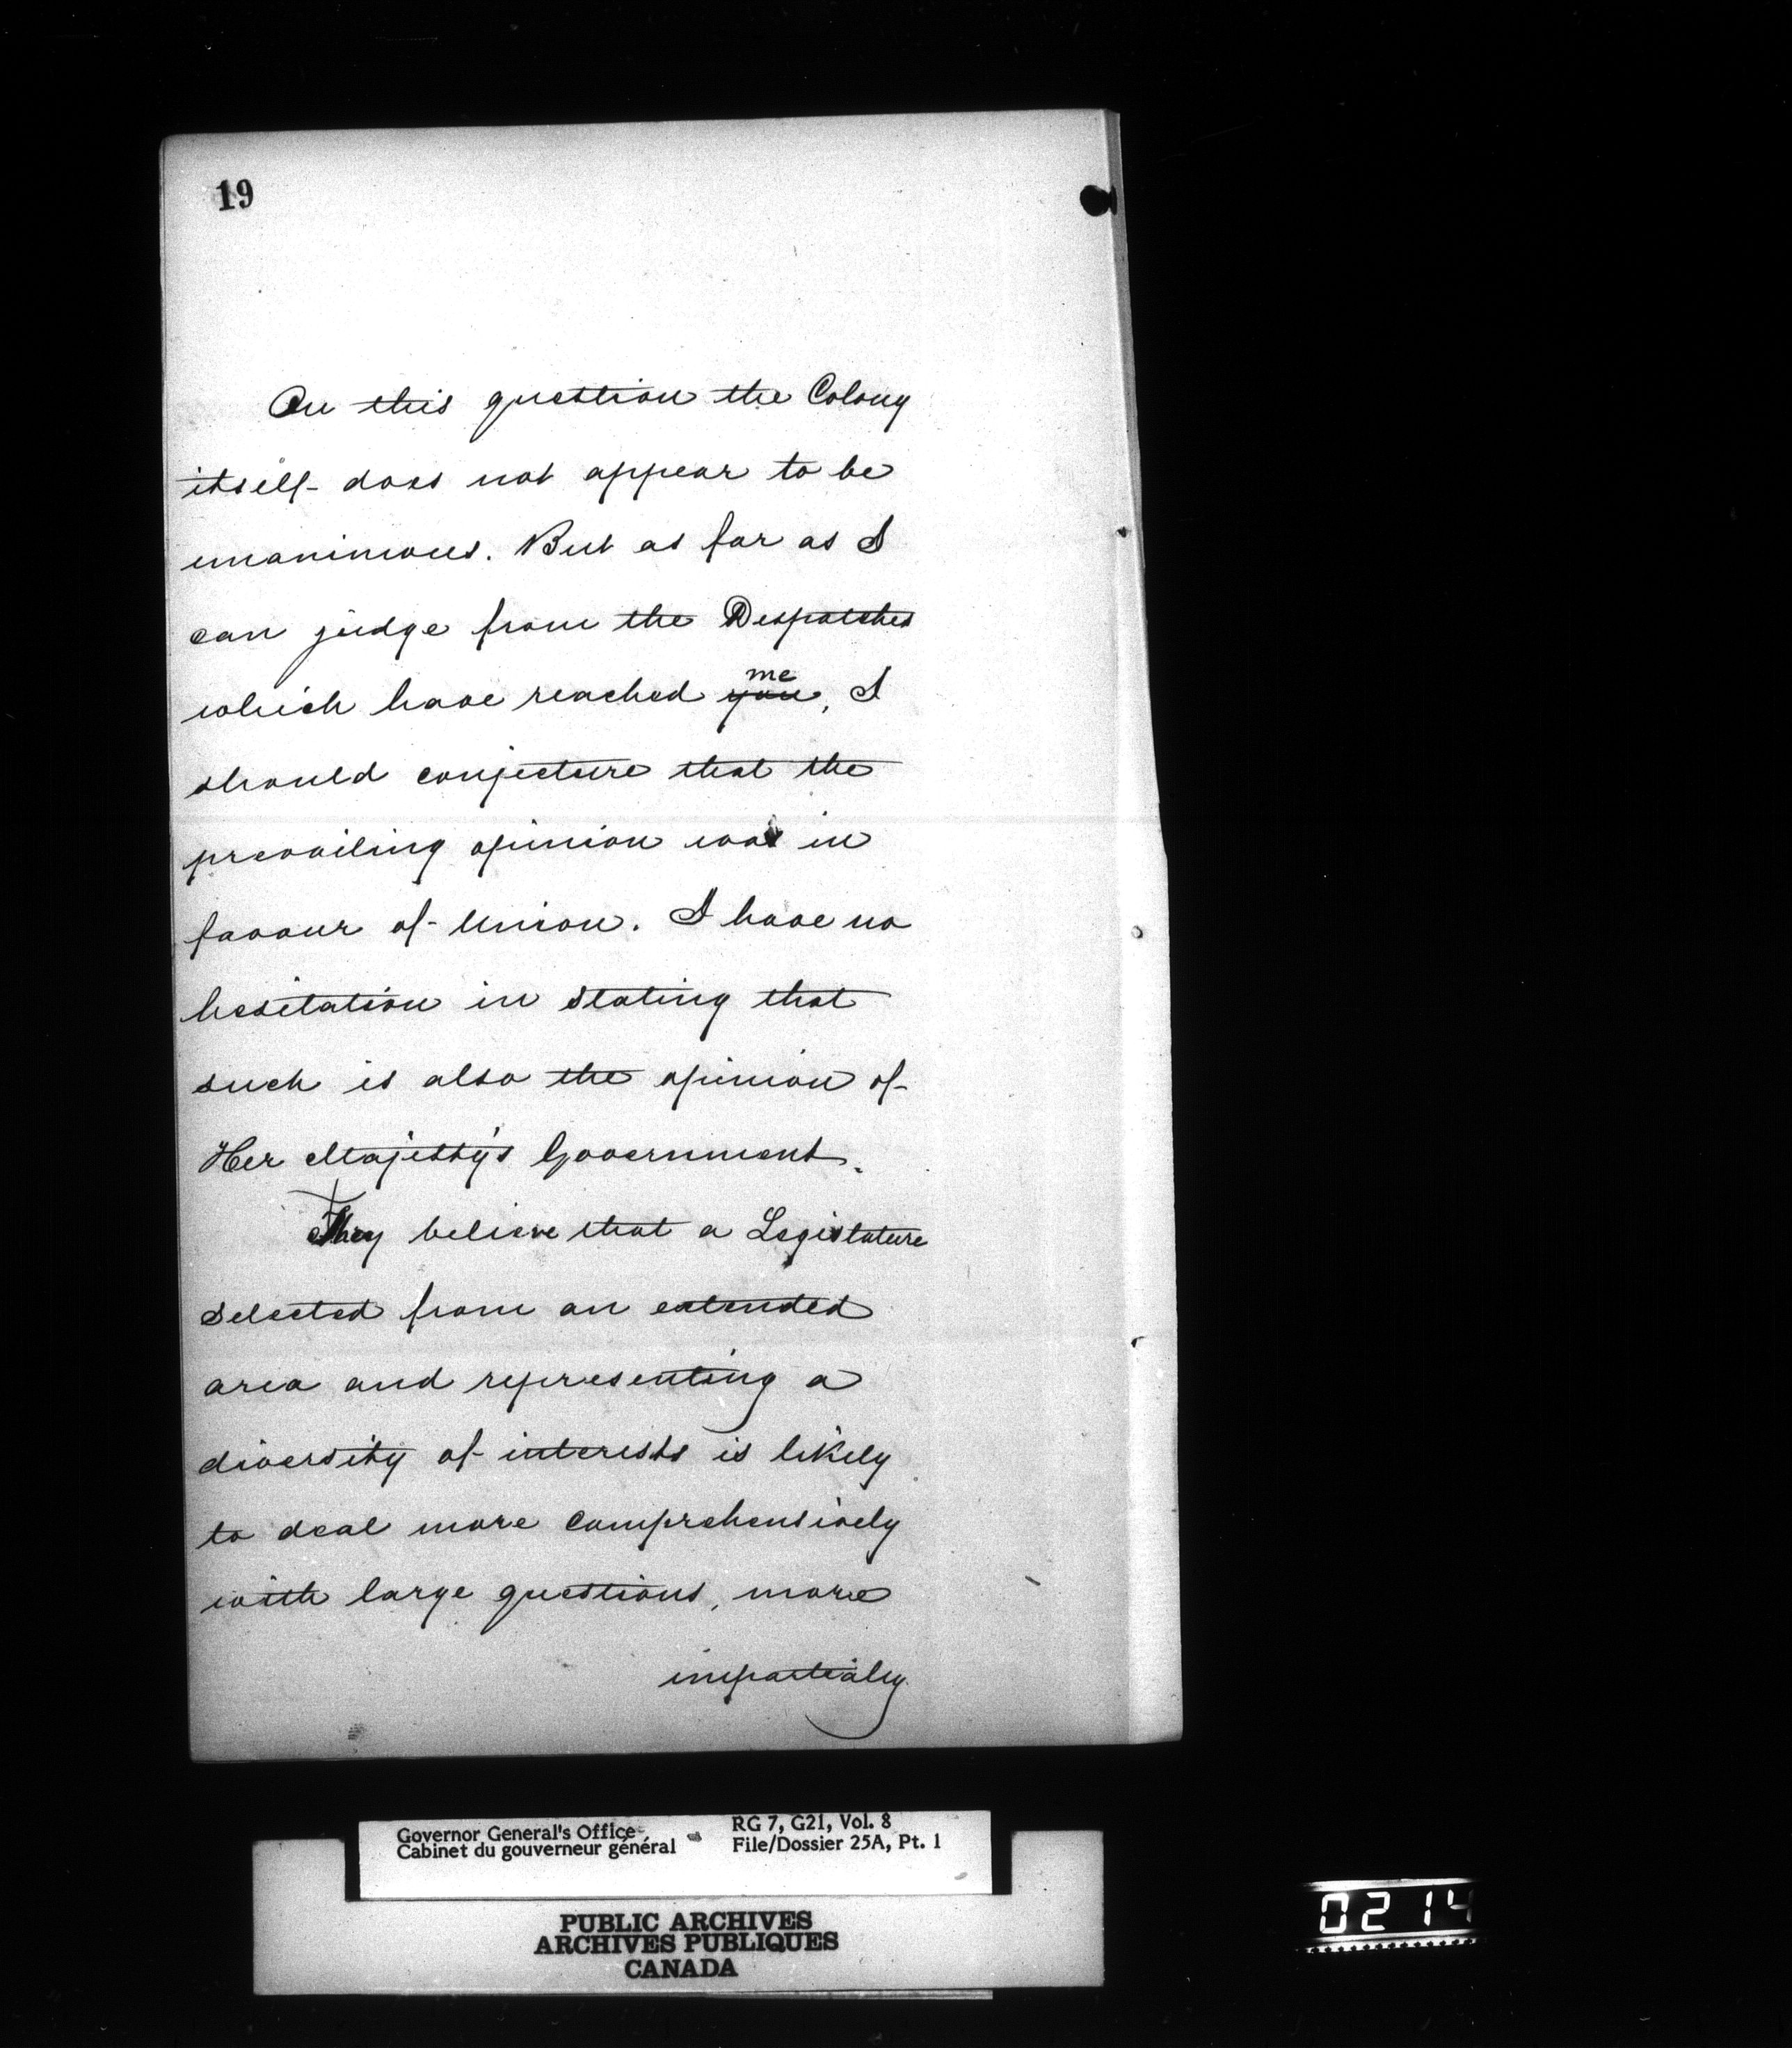 19
On this question the Colony
itself does not appear to be
unanimous. But as far as I
can judge from the Despatches
me
which have reached you, I
should conjecture that the
prevailing opinion was in
favour of Union. I have no
hesitation in stating that
such is also the opinion of
Her Majesty's Government.
They believe that a Legislature
selected from an extended
area and representing a
diversity of interests is likely
to deal more comprehensively
with large questions, more
impartialy
Governor General's Office
Cabinet du gouverneur général
RG 7, G21, Vol. 8
File/Dossier 25A, Pt. 1
PUBLIC ARCHIVES
ARCHIVES PUBLIQUES
CANADA
0214